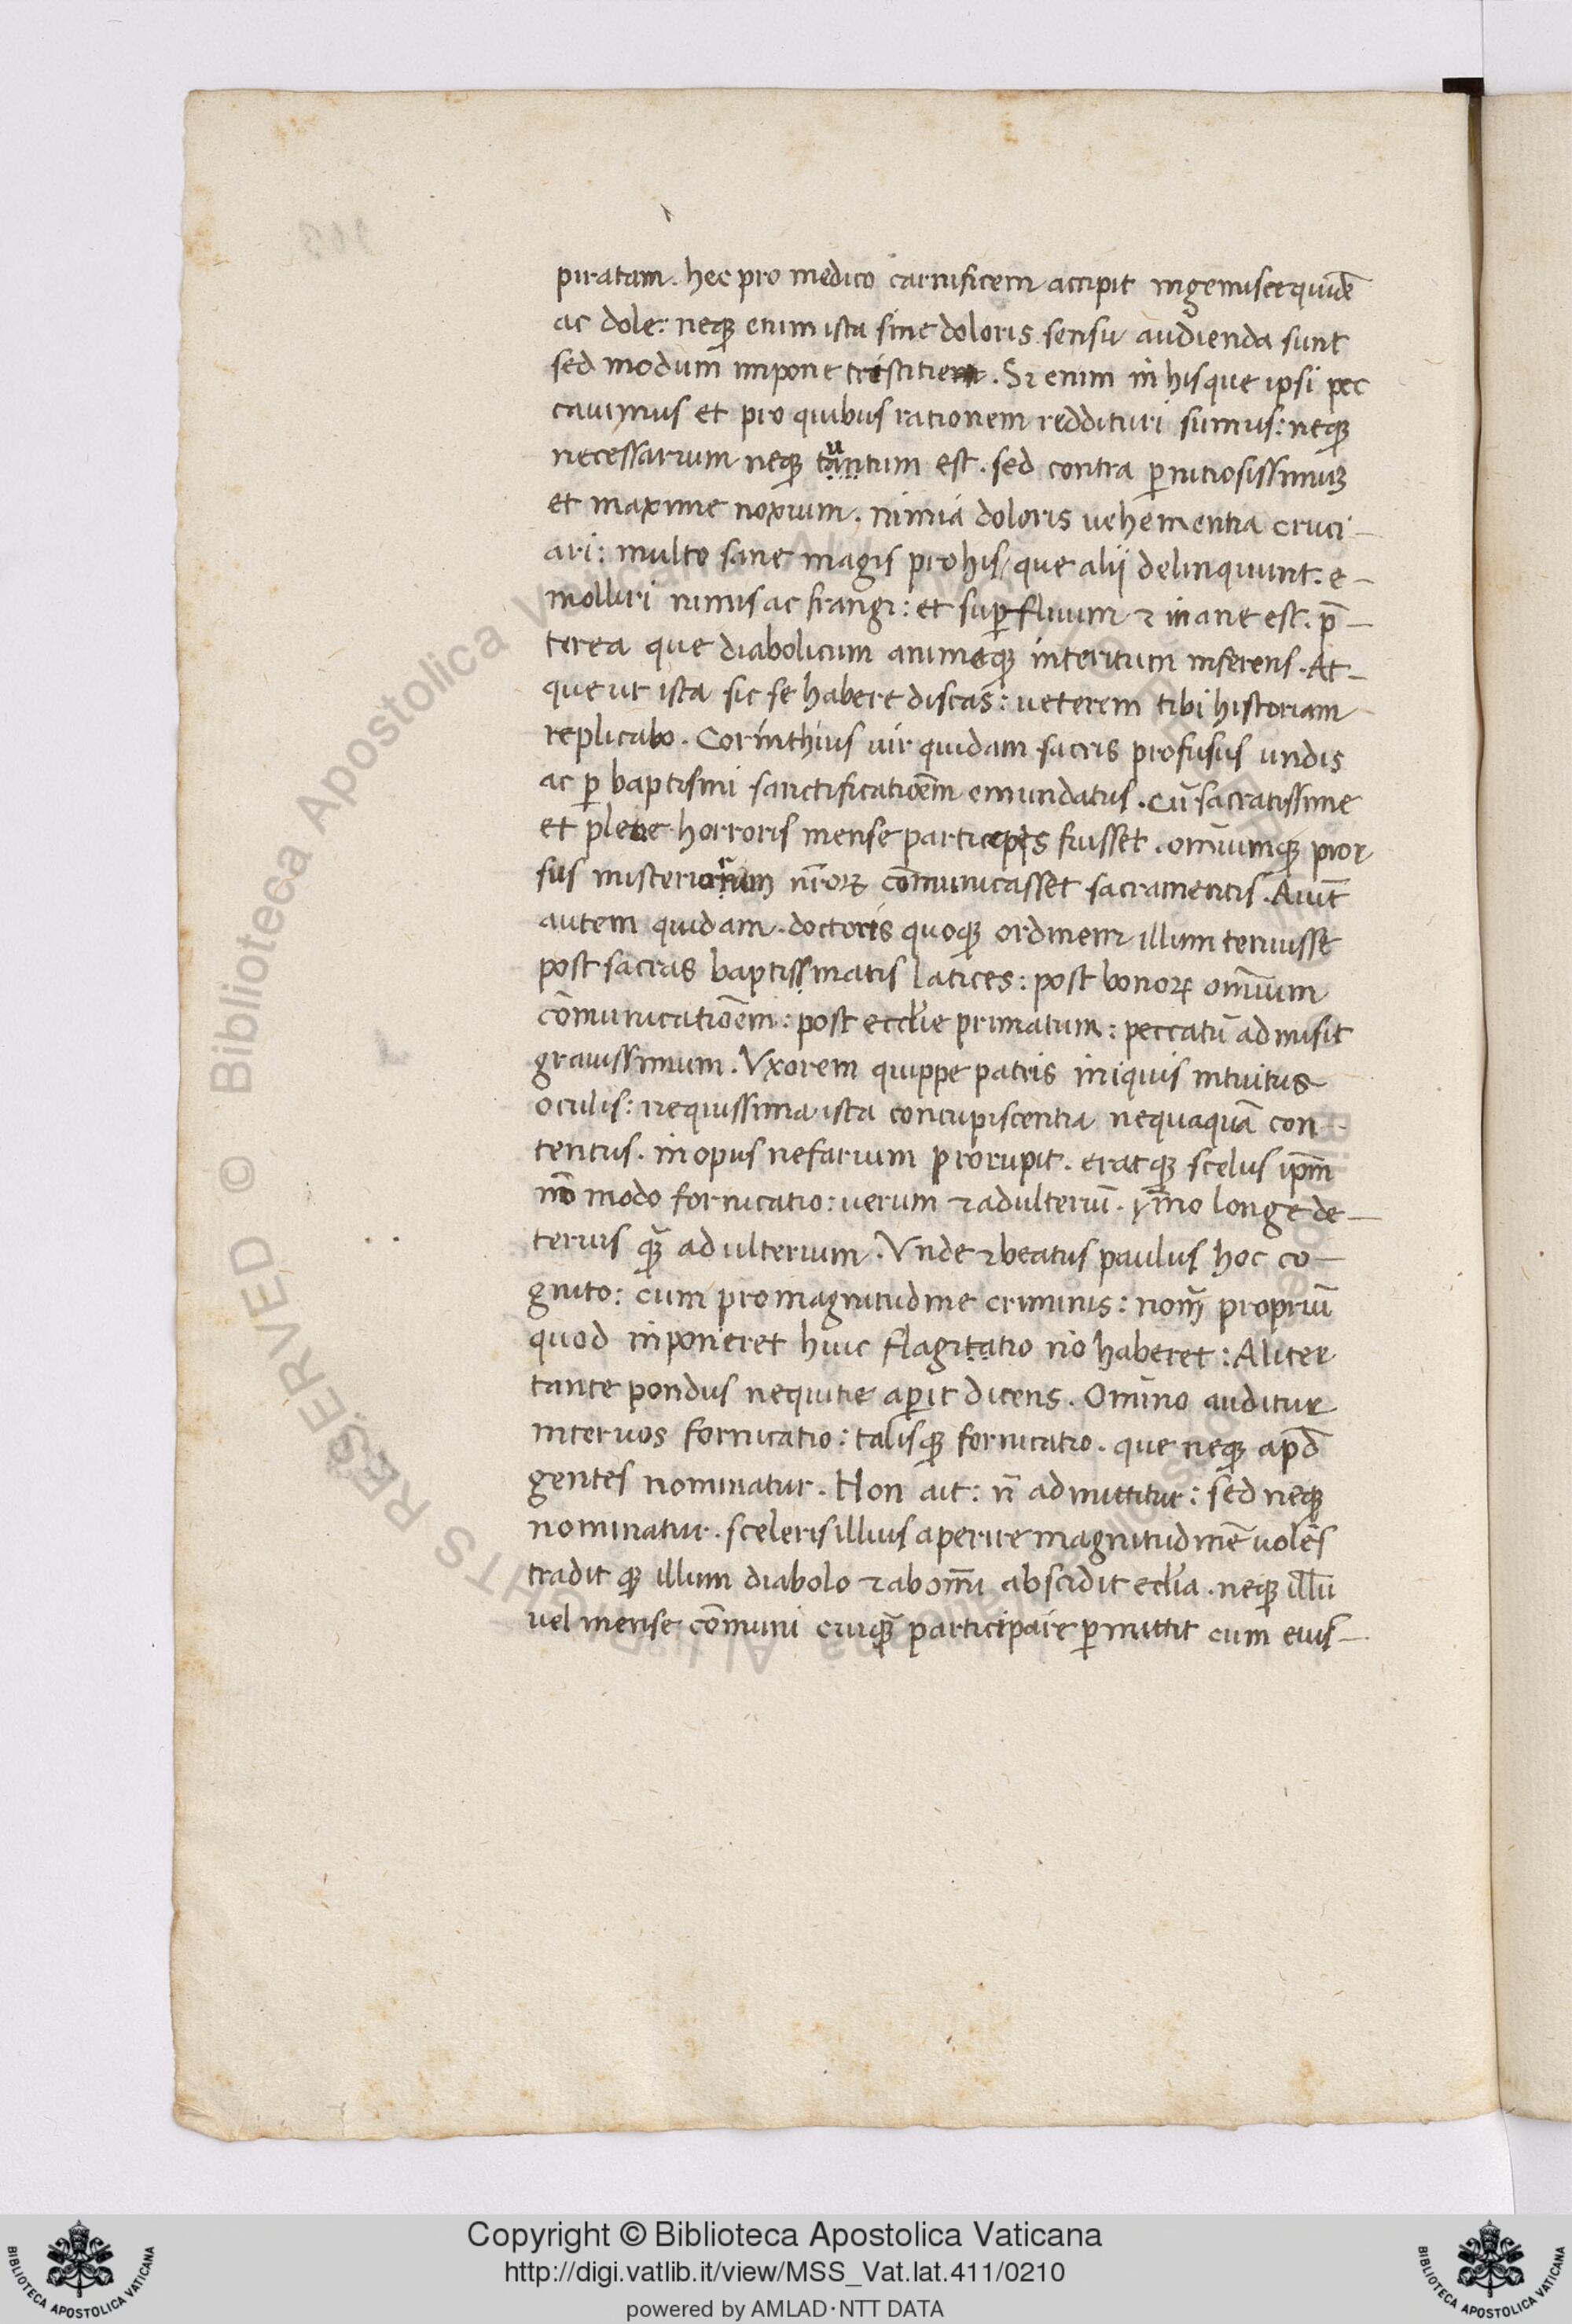 piratam. hec pro medico carnificem accipit ingemisce quidē
ac dole: neqꝫ enim ista sine doloris sensu audienda sunt
sed modum impone tristitie. Si enim in his que ipsi pec
cauimus et pro quibus rationem reddituri sumus: neqꝫ
necessarium neqꝫ tutum est. sed contra ꝑnitiosissimuꝫ
et maxime noxium. nimia doloris uehementia cruci-
ari: multo sane magis pro his / que alii delinquunt. e-
molliri nimis ac frangi: et suꝑfluum ⁊ inane est. p̄-
terea que diabolicum animeqꝫ interitum inferens. At-
que ut ista sic se habere discas: ueterem tibi historiam
replicabo. Corinthius uir quidam sacris profusus undis
ac ꝑ baptismi sanctificatiōem emundatus. Cū sacratissime
et plene horroris mense particeps fuisset. omīumqꝫ pror
sus misteriorum nr̄oꝝ cōmunicasset sacramentis. Aiūt
autem quidam. doctoris quoqꝫ ordinem illum tenuisse
post sacras baptissmatis latices: post bonoꝝ omīum
cōmunicatiōem: post eccl̄ie primatum: peccatū admisit
grauissimum. Vxorem quippe patris iniquis intuitus
oculis: nequissima ista concupiscentia nequaquā con-
tentus. in opus nefarium prorupit. eratqꝫ scelus ip̄m
nō modo fornicatio: uerum ⁊ adulteriū. ymo longe de-
terius qꝫ̄ adulterium. Vnde ⁊ beatus paulus hoc co-
gnito: cum pro magnitudine criminis: nom̄ propriū
quod inponeret huic flagitatio nō haberet: Aliter
tante pondus nequitie aꝑit dicens. Omīno auditur
inter uos fornicatio: talisqꝫ fornicatio. que neqꝫ apd̄
gentes nominatur. Non ait: n̄ admittitur: sed neqꝫ
nominatur. sceleris illius aperire magnitudinē uolēs
tradit qꝫ illum diabolo ⁊ ab omī abscidit ecl̄ia. neqꝫ illū
uel mense cōmuni cuiqꝫ̄ participare ꝑmittit cum eius-
Copyright © Biblioteca Apostolica Vaticana
http://digi.vatlib.it/view/MSS_Vat.lat.411/0210
powered by AMLAD·NTT DATA